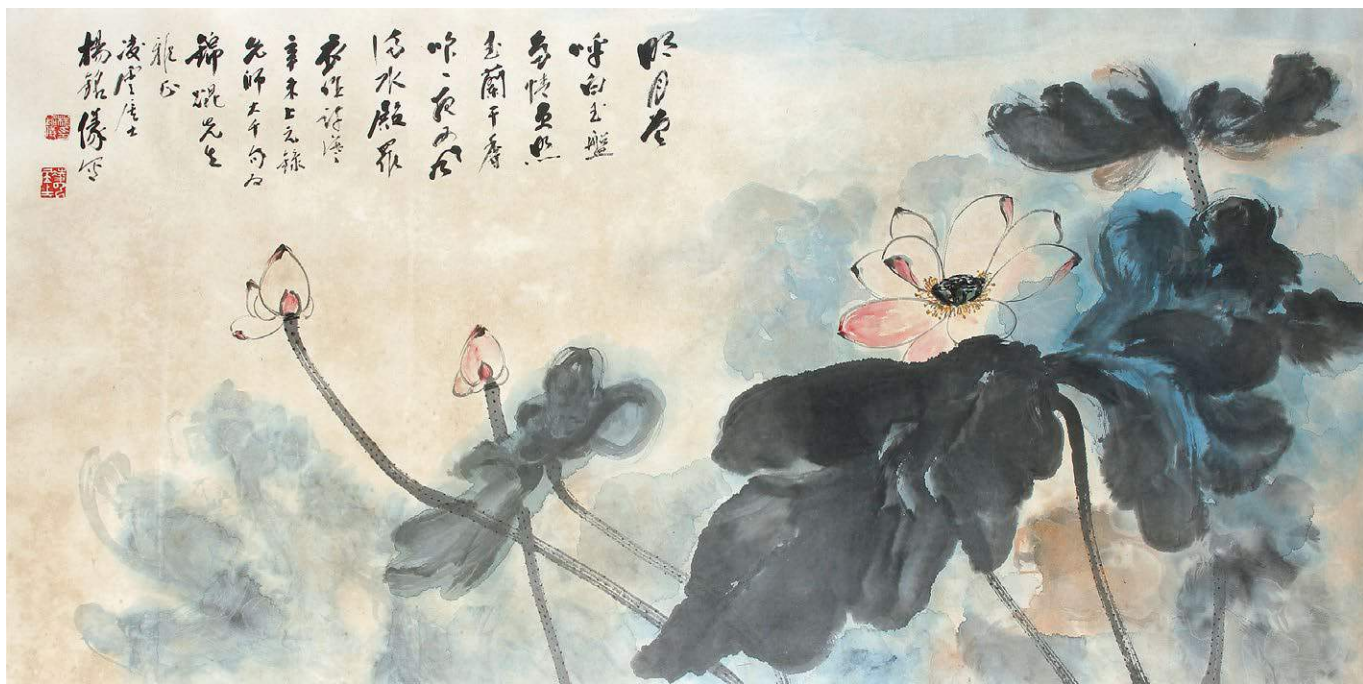 明月曾
呼白玉盤
多情更照
玉蘭干香
吹一夜西風
滿水殿羅
衣作許涼
辛未上元錄
先師大千句為
錦焜先生
雅正
淩雲處士
楊銘儀寫